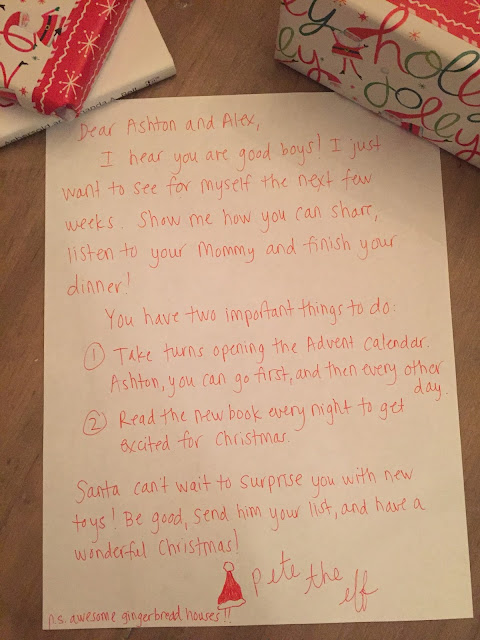 Dear Ashton and Alex,
I hear you are good boys! I just
want to see for myself the next few
weeks. Show me how you can share,
listen to your Mommy and finish your
dinner!
You have two important things to do:
① Take turns opening the Advent Calendar.
Ashton, you can go first, and then every other
day.
② Read the new book every night to get
excited for Christmas.
Santa can't wait to surprise you with new
toys! Be good, send him your list, and have a
wonderful Christmas!
Pete the elf
p.s. awesome gingerbread houses!!
holly
jolly